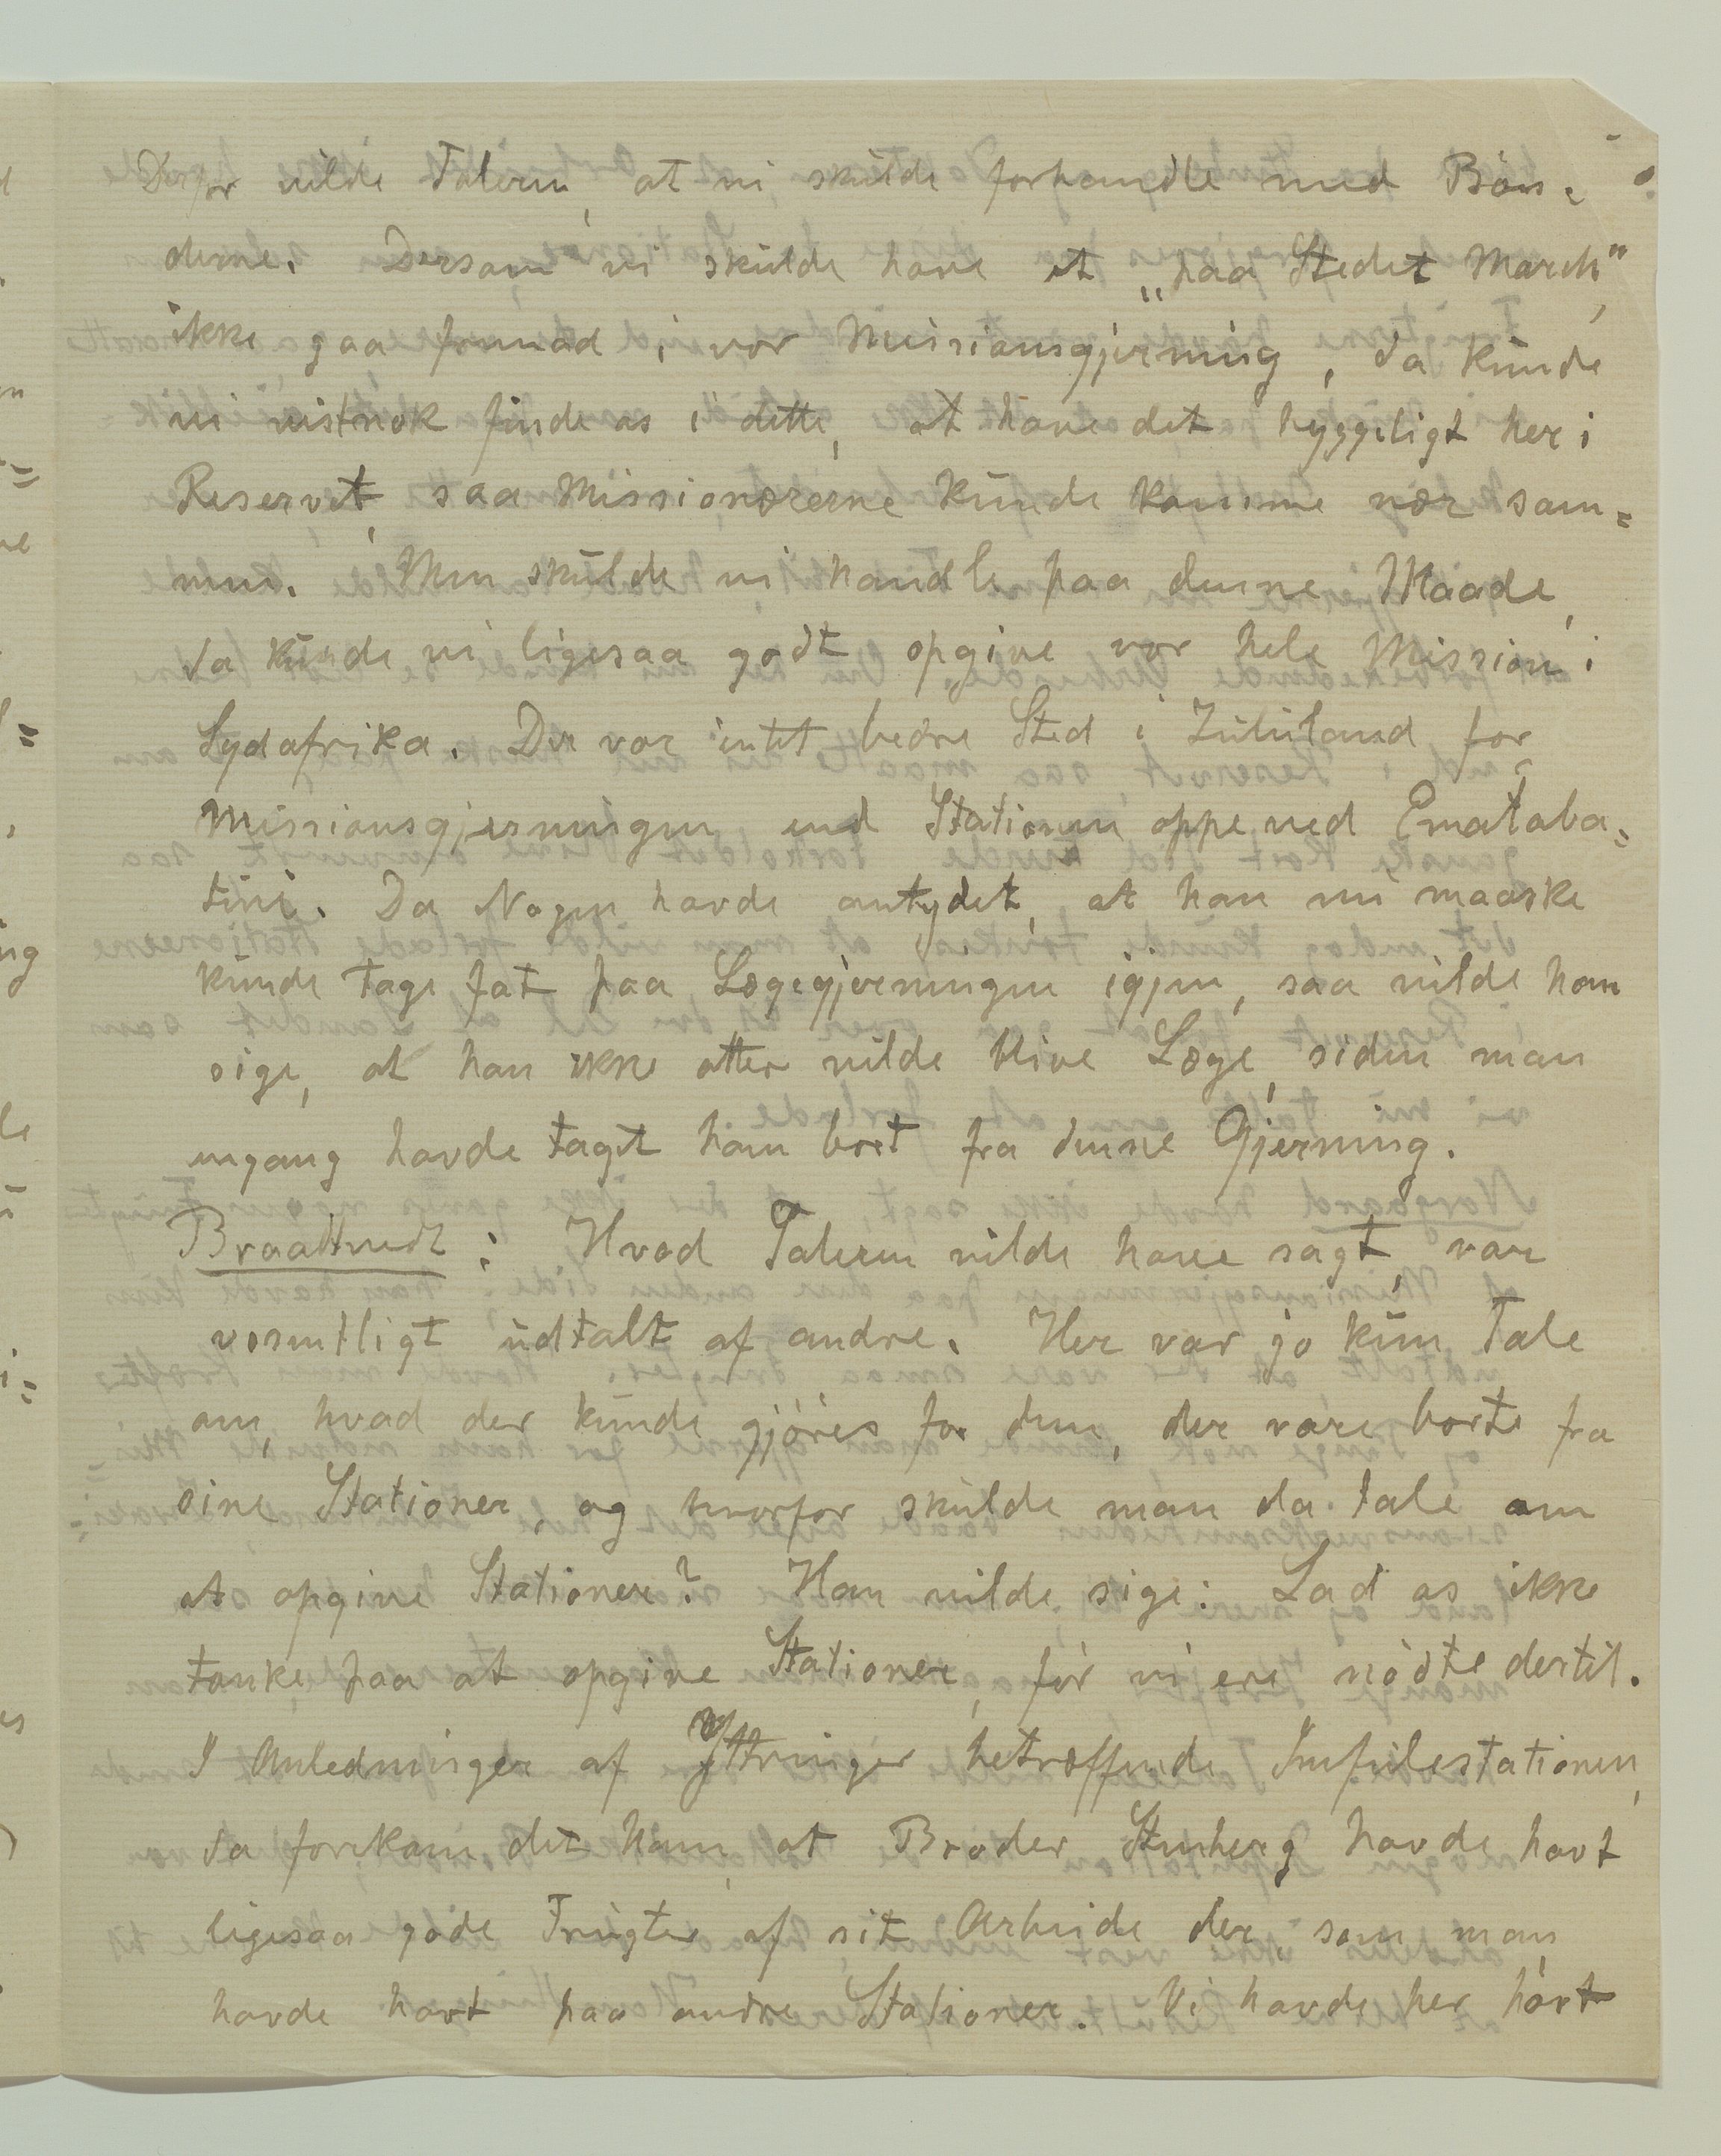 Derfor vilde Taleren, at vi skulde forhandle med Bøn=
derne. Dersom vi skulde have et „paa Stedet March",
ikke gaa fremad i vor Missionsgjerning, da kunde
vi vistnok finde os i dette, at have det hyggeligt her i
Reservet, saa Missionærerne kunde komme nær sam=
men. Men skulde vi handle paa denne Maade,
da kunde vi ligesaa godt opgive vor hele Mission i
Sydafrika. Der var intet bedre Sted i Zululand for
Missionsgjerningen end Stationen oppe ved Emataba=
tini. Da Nogen havde antydet, at han nu maaske
kunde tage fat paa Lægegjerningen igjen, saa vilde han
sige, at han ikke atter vilde blive Læge, siden man
engang havde taget ham bort fra denne Gjerning.
Braatvedt: Hvad Taleren vilde have sagt, var
vesentligt udtalt af andre. Her var jo kun Tale
om, hvad der kunde gjøres for dem, der vare borte fra
sine Stationer, og hvorfor skulde man da tale om
at opgive Stationer? Han vilde sige: Lad os ikke
tænke paa at opgive Stationer, før vi ere nødte dertil.
I Anledninger af Yttringer betræffende Imfulestationen,
da forekom det ham, at Broder Stenberg havde havt
ligesaa gode Frugter af sit Arbeide der, som man
havde havt paa andre Stationer. Vi havde her hørt